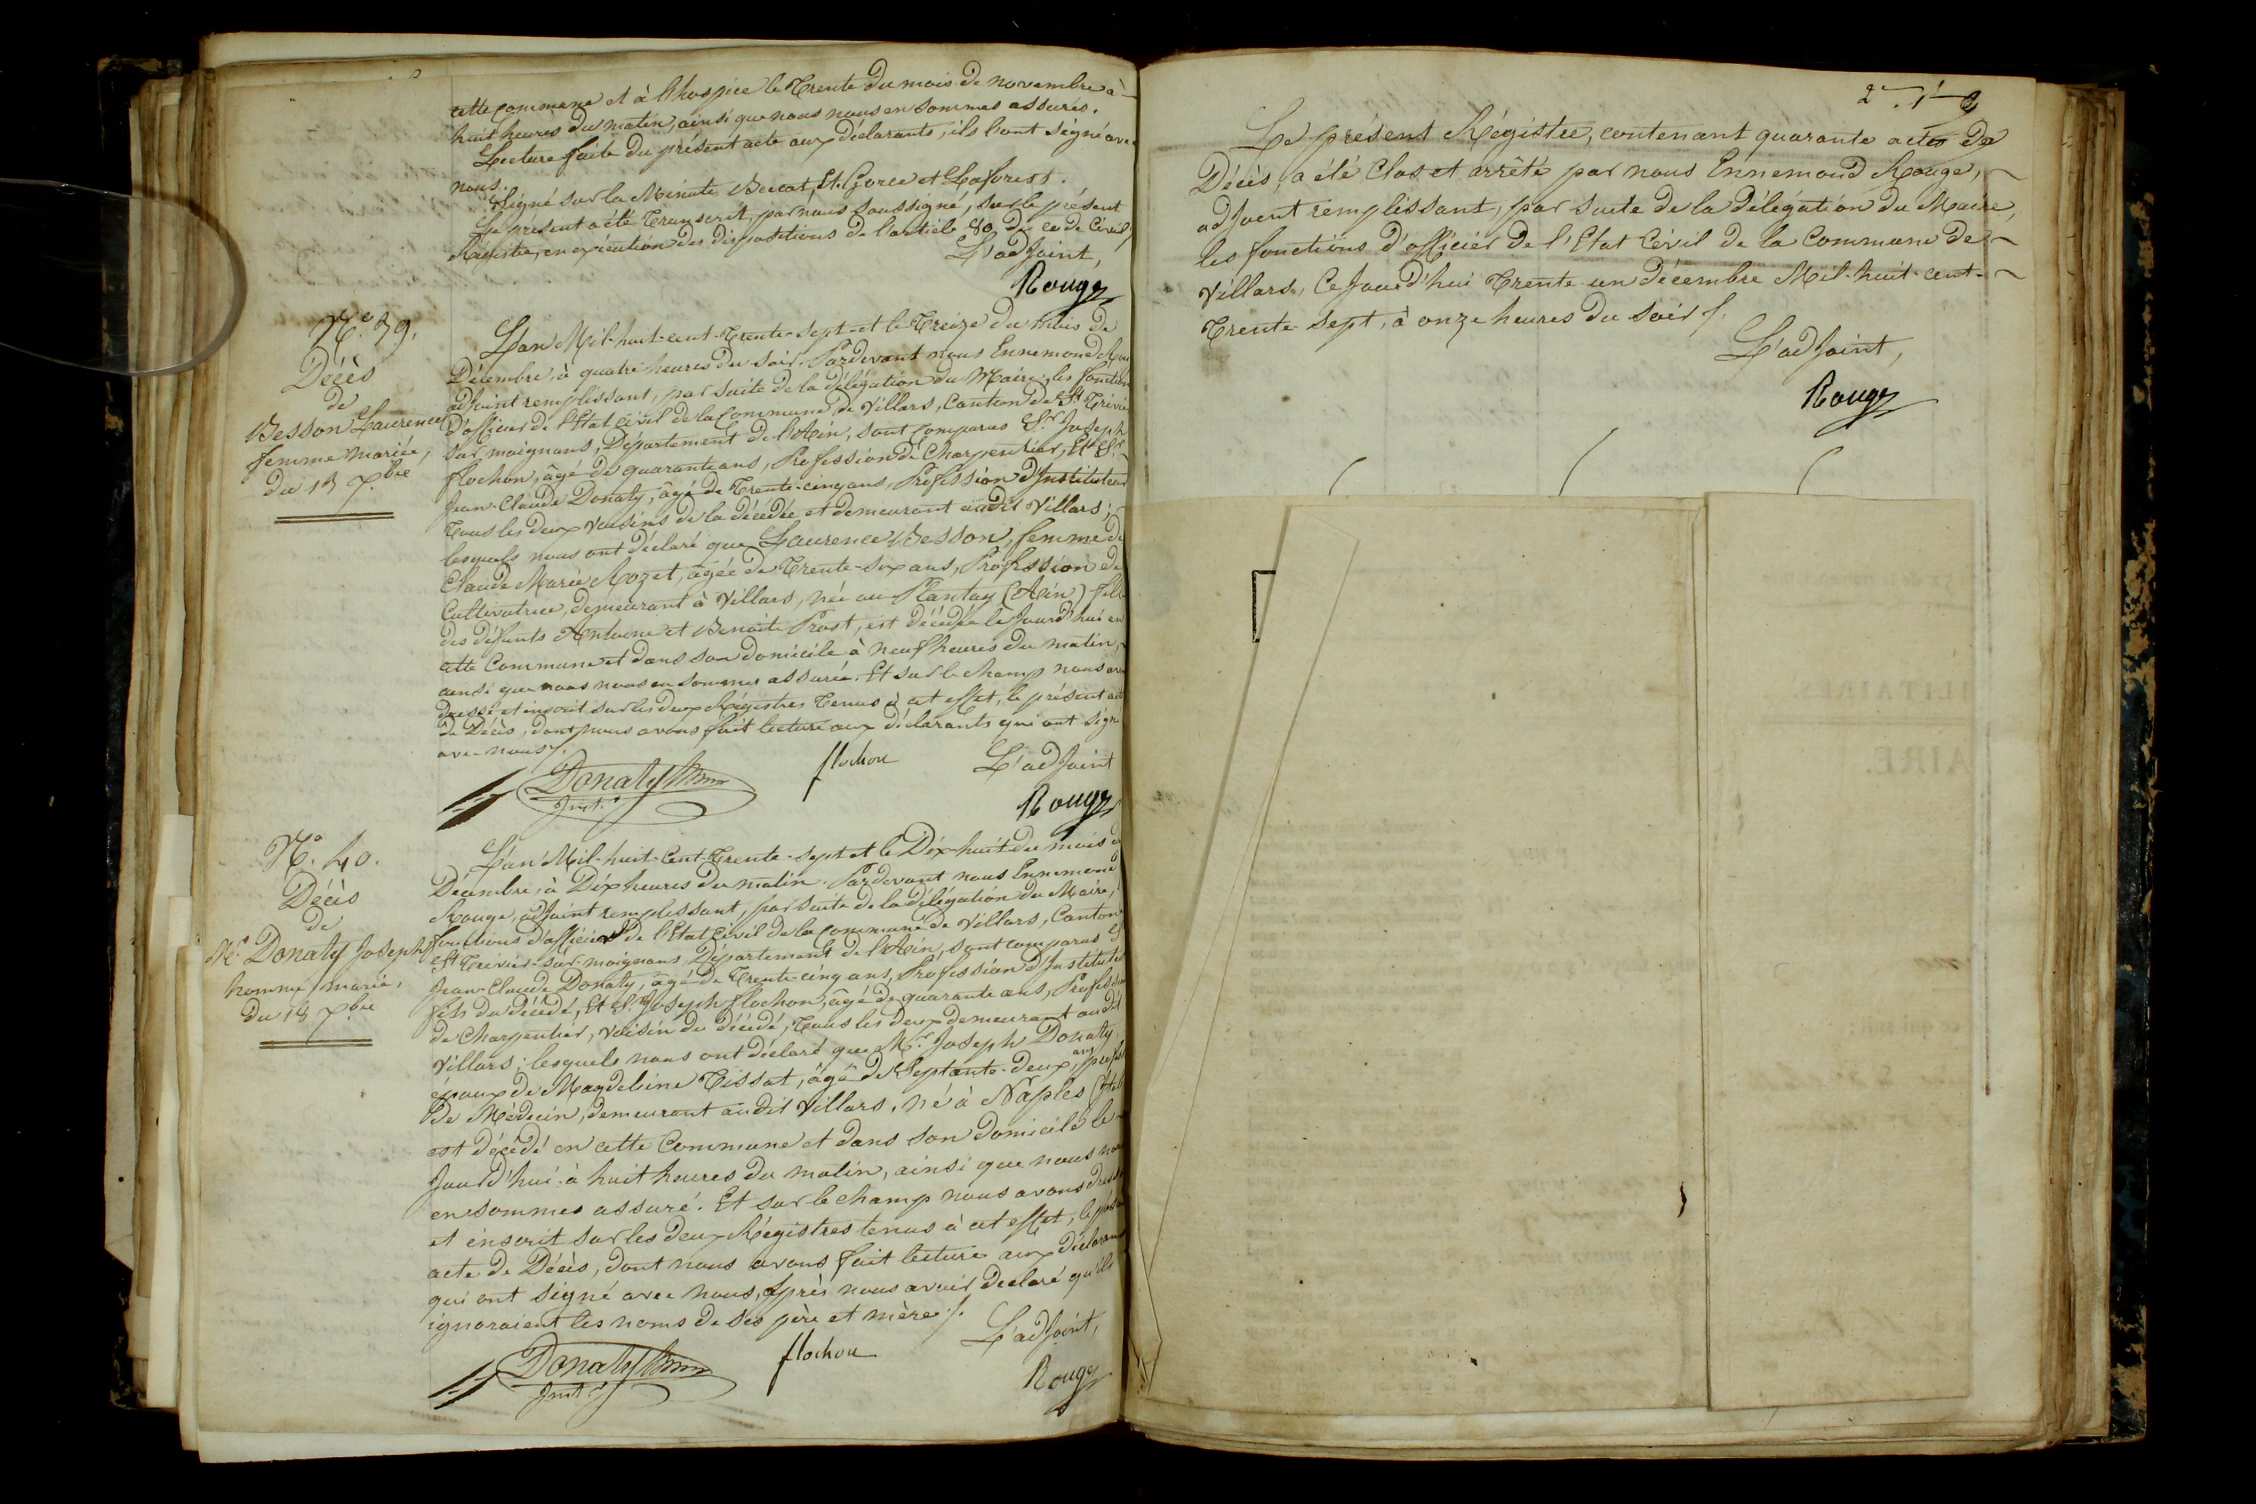 cette commune et à l'hospice le Trente du mois de novembre à
huit heures du matin, ainsi que nous nous en sommes assurés.
Lecture faite du présent acte aux déclarants, ils l'ont signé avec
nous.
Signé sur la Minute Et Laforest.
Le présent a été Transcrit, par nous soussigné, sur le présent
Régistre, en exécution des dispositions de l'article 80 du code Civil
L'adjoint,
Rouge
N.° 39.
Décès
de
Besson Laurence
femme mariée,
du 13 Xbre
L'an Mil-huit-cent-Trente-sept et le Treize du mois de
Décembre, à quatre heures du soir. Pardevant nous Ennemond
adjoint remplissant, par suite de la délégation du Maire, les fonctions
d'officier de l'Etat civil de la Commune de Villars, Canton de St Trivier
sur moignans, Département de l'Ain, sont comparus Sr Joseph
flochon, âgé de quarante ans, Profession de Charpentier, Et Sr
Jean-Claude Donaty, âgé de Trente-cinq ans, Profession d'Instituteur
Tous les deux voisins de la décédée et demeurant audit Villars;
lesquels nous ont déclaré que Laurence Besson, femme de
Claude Marie Rozet, âgée de Trente-six ans, Profession de
Cultivatrice, demeurant à Villars, née au Plantay (Ain) fille
des défunts Antoine et Benoite Prost, est décédée le Jourd'hui en
cette Commune et dans son domicile à neuf heures du matin,
ainsi que nous nous en sommes assurés. Et sur le champ nous avons
dressé et inscrit sur les deux Régistres Tenus à cet effet, le présent acte
de Décès, dont nous avons fait lecture aux déclarants qui ont signé
avec nous /.
Donaty
Inst.r
flochon
L'adjoint
Rouge
N.° 40.
Décès
de
Mr Donaty Joseph
homme marié,
du 18 Xbre
L'an Mil-huit-Cent-Trente-sept et le Dix-huit du mois de
Décembre, à Dix heures du matin. Pardevant nous Ennemond
Rouge, adjoint remplissant, par suite de la délégation du Maire,
fonctions d'officier de l'Etat Civil de la commune de Villars, Canton
St Trivier-sur-moignans, Département de l'Ain, sont comparus Sr
Jean-Claude Donaty, âgé de Trente-cinq ans, Profession d'Instituteur
fils du décédé, Et Sr Joseph flochon, âgé de quarante ans, Profession
de Charpentier, voisin du décédé, Tous les deux demeurant audit
Villars; lesquels nous ont déclaré que Mr Joseph Donaty
époux de Magdeleine Tissot, âgé de Septante-deux ans, profession
De Médecin, demeurant audit Villars, né à Naples
est décédé en cette Commune et dans son domicile le
Jourd'hui à huit heures du matin, ainsi que nous nous
en sommes assuré. Et sur le champ nous avons dressé
et inscrit sur les deux Régistres tenus à cet effet, le présent
acte de Décès, dont nous avons fait lecture aux déclarants
qui ont signé avec nous, après nous avoir déclaré qu'ils
ignoraient les noms de ses père et mère /.
Donaty
Inst.r
flochon
L'adjoint,
Rouge
Le présent Régistre, contenant quarante actes de
Décès, a été Clos et arrêté par nous Ennemond Rouge,
adjoint remplissant, par suite de la délégation du Maire,
les fonctions d'officier de l'Etat Civil de la Commune de
Villars, Ce Jourd'hui Trente-un décembre Mil-huit-cent-
Trente-sept, à onze heures du soir /.
L'adjoint,
Rouge